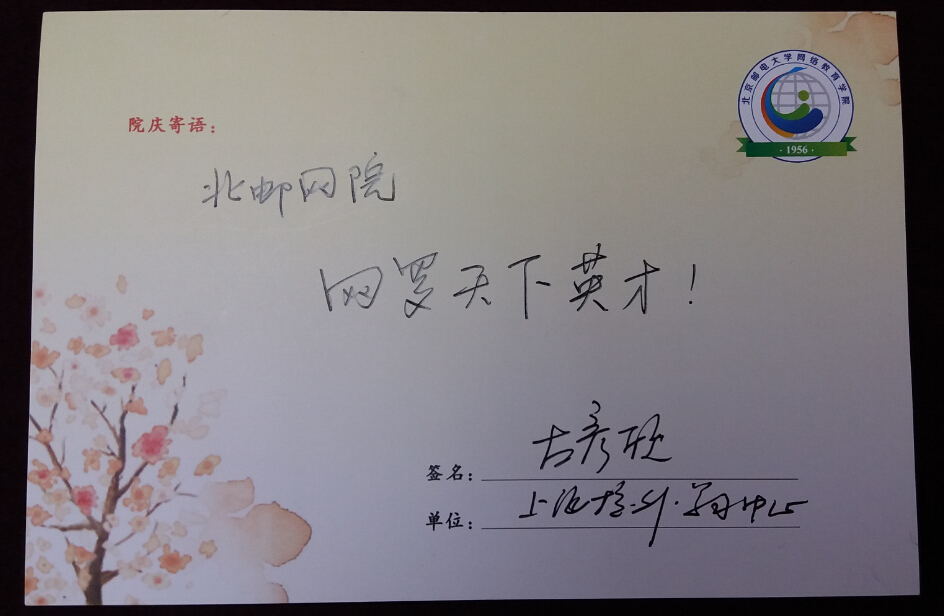 北京邮电大学网络教育学院
· 1956 ·
院庆寄语：
北邮网院
网罗天下英才！
签名：古彦
单位：上海 学习中心